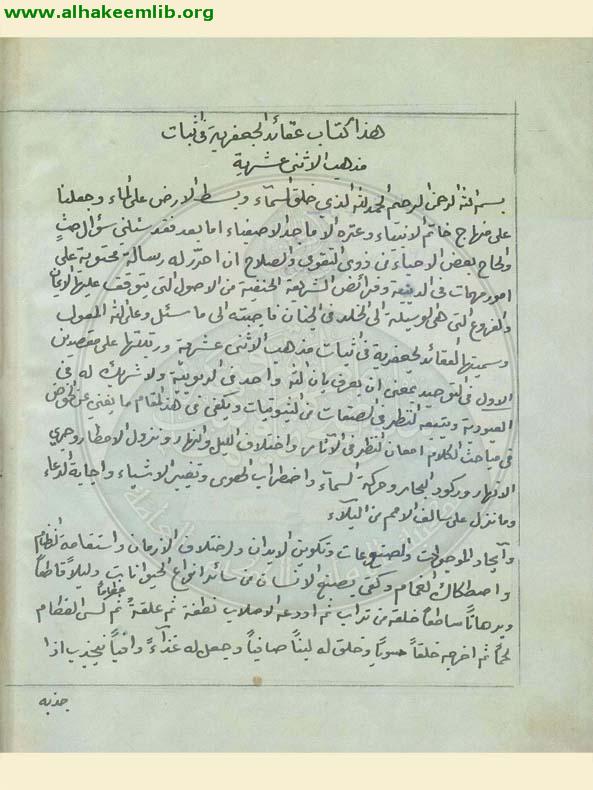 www.alhakeemlib.org
هذا كتاب عقائد الجعفرية في اثبات
مذهب الاثنى عشرية
بسم الله الرحمن الرحيم الحمد لله الذي خلق السمآء وبسط الارض على الماء وجعلنا
على منهاج خاتم الانبياء وعتره الاماجد الاصفياء اما بعد فقد سئلني سؤال حثٍ
والحاح بعض الاحباء من ذوي التقوى والصلاح ان احرّر له رسالة محتوية على
امور مهمات في الدين وفرائض الشريعة الحنفية من الاصول التي يتوقف عليها الايمان
والفروع التي هي الوسيلة الى الخلد في الجنان فاجبته الى ما سئل وعلى الله المعول
وسميتها العقائد الجعفرية في اثبات مذهب الاثنى عشرية ورتبتها على مقصدين
الاول في التوحيد بمعنى ان يعرف بان الله واحد في الربوبية ولا شريك له في
العبودية ويتبعه النظر في الصفات من الثبوتيات ويكفي في هذا المقام ما يغني عن الخوض
في مباحث الكلام امعان النظر في الآثار واختلاف الليل والنهار ونزول الامطار وجري
الانهار وركود البحار وحركة السمآء واضطراب الهوى وتغيير الاشياء واجابة الدعاء
وما نزل على سالف الامم من البلآء
وآيجاد الموجودات والمصنوعات وتكوين الابدان واختلاف الازمان واستقامه النظام
واصطكاك الغمام وكفى بصنع الانسان من سائر انواع الحيوانات دليلاً قاطعاً
وبرهاناً ساطعاً خلقه من تراب ثم اودعه الاصلاب نطفة ثم علقةً ثم عظاماً ثم كسى العظام
لحماً ثم اخرجه خلقاً سويا وخلق له لبناً صافياً وجعل له غذآءً وافياً ينجذب اذا
جذبه